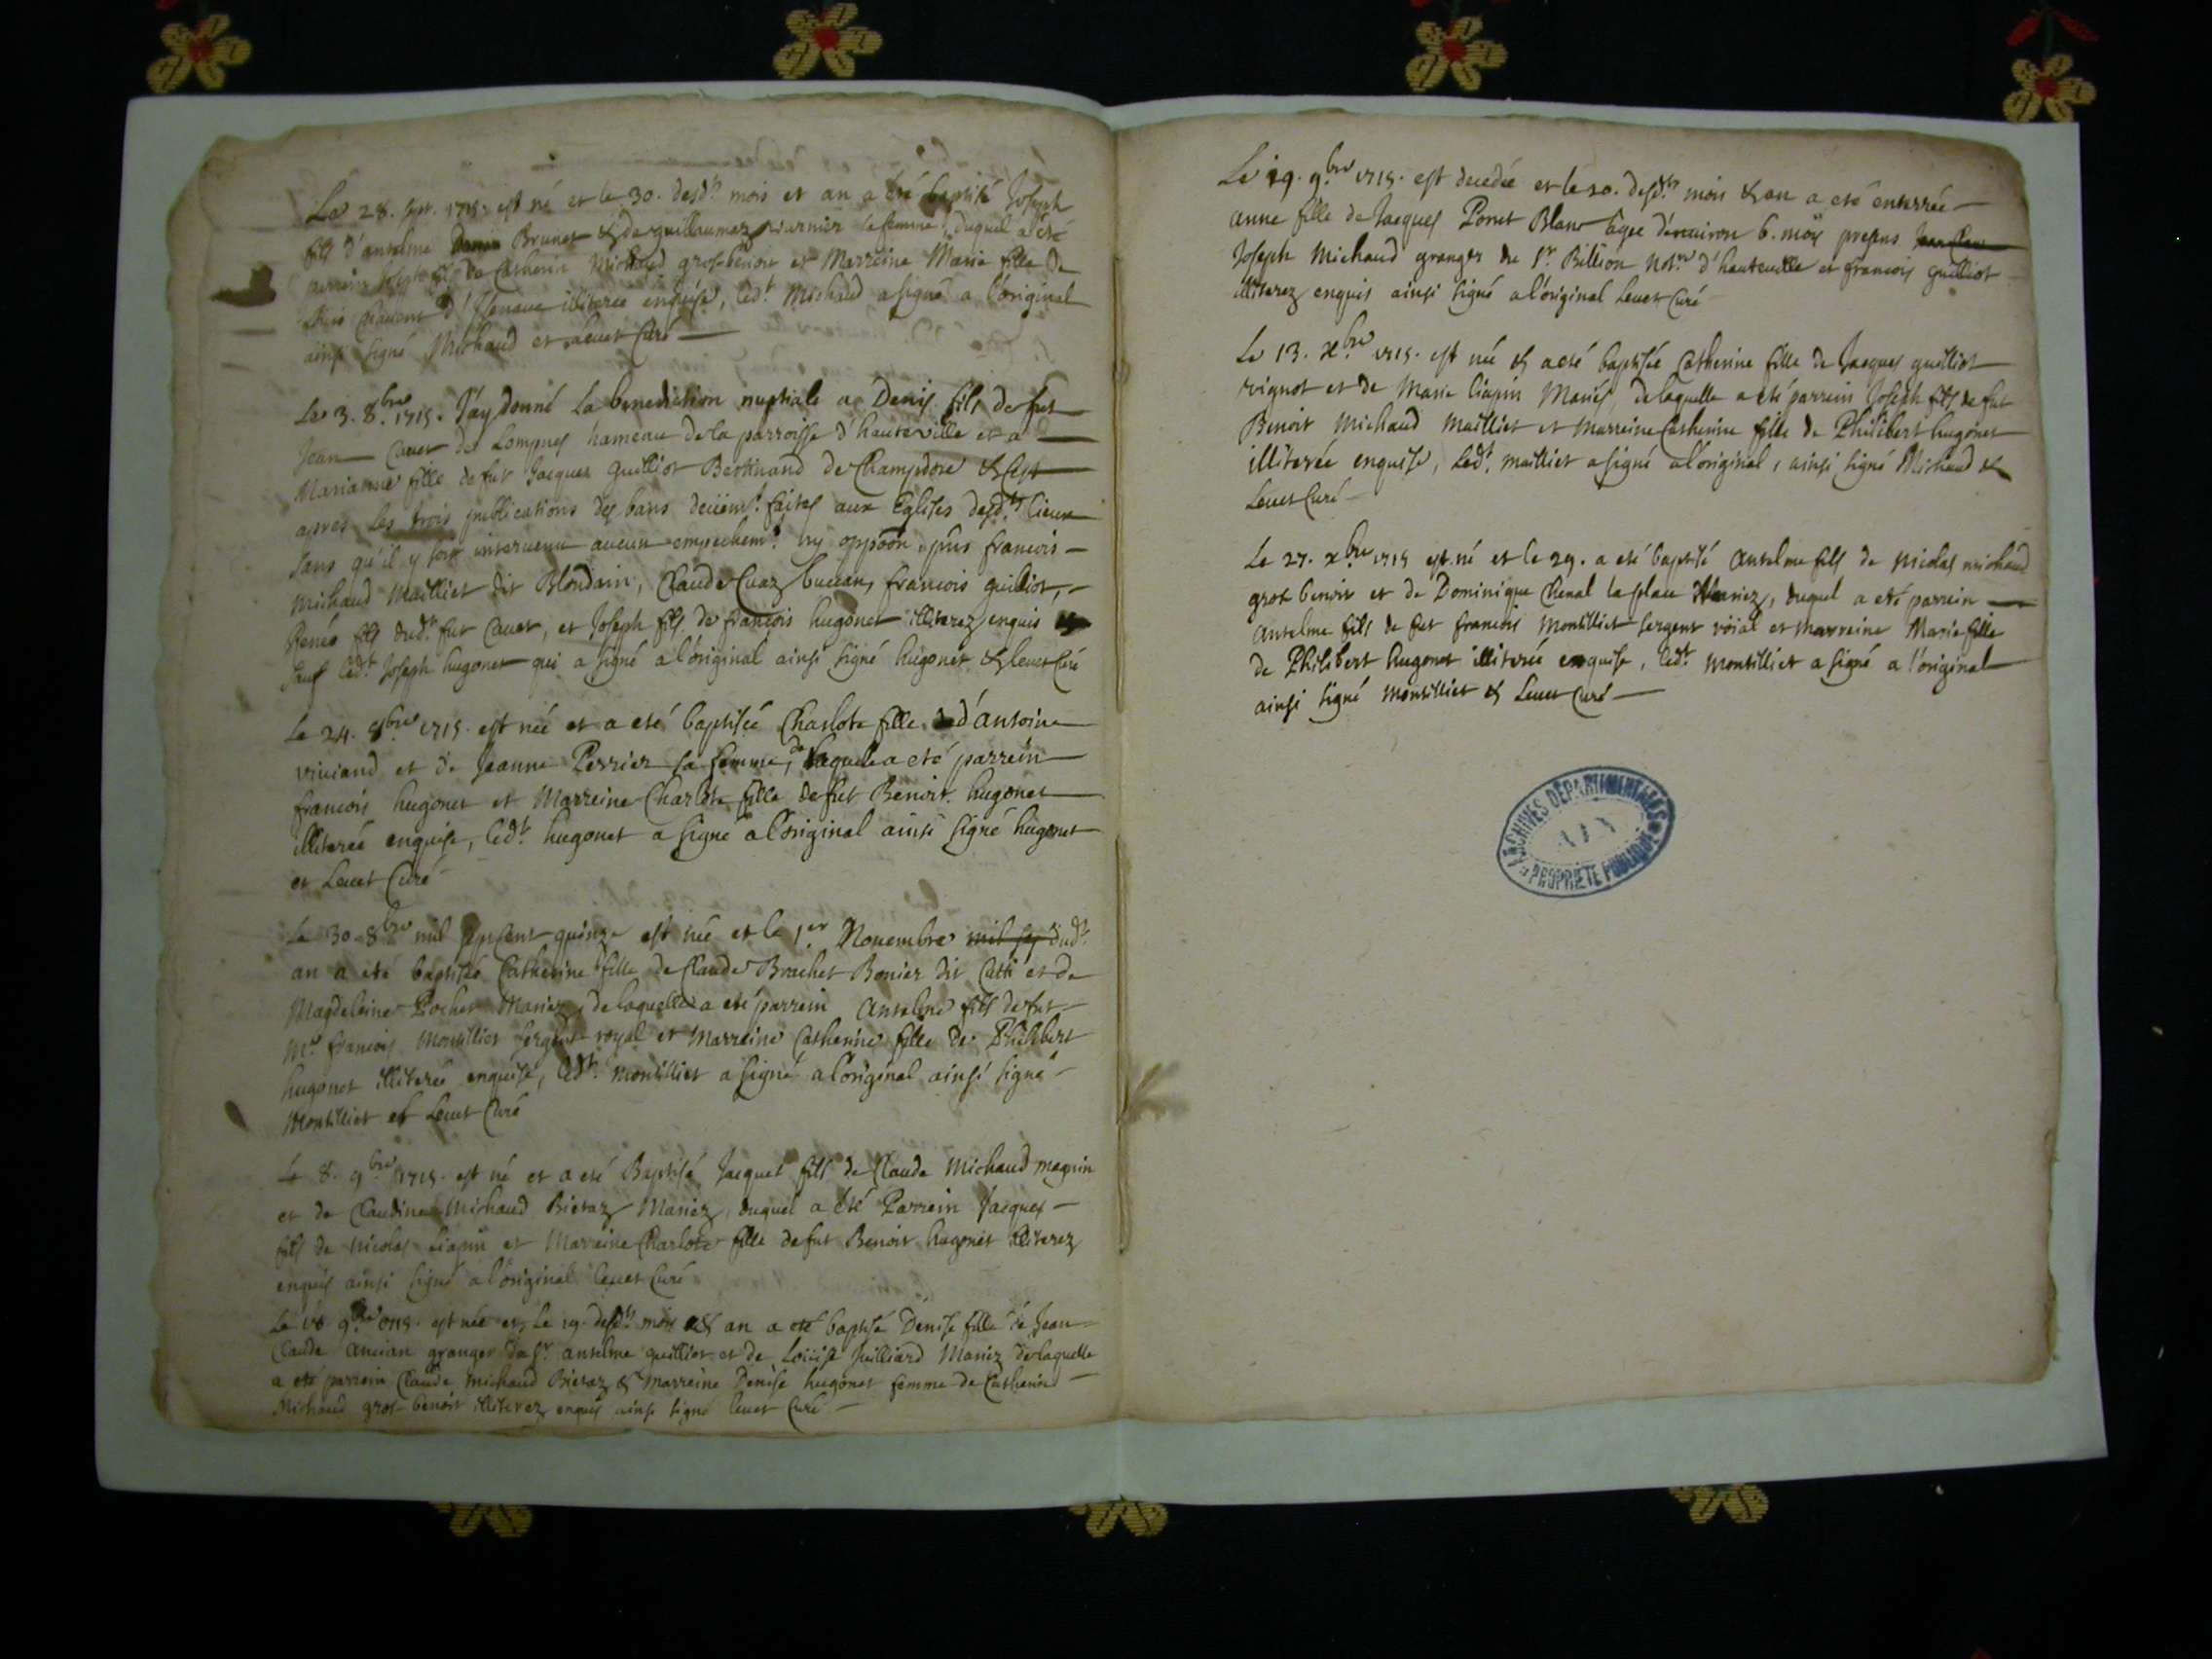 Le 28. sept. 1715. est né et le 30. desd.ts mois et an a été baptisé Joseph
fils d'anselme Brunet & de guillaumaz sa femme, duquel a été
parrein Joseph fils de Catherin Michaud gros-benoit et Marreine Marie fille de
illiterée enquise, led.t Michaud a signé a l'original
ainsi signé Michaud et Levet Curé
Le 3. 8.bre 1715. J'ay donné la benediction nuptiale a Denis fils de fut
Jean Cavet de Lompnes hameau de la parroisse d'hauteville et a
Marianne fille de fut Jacques guilliot Bertinand de Champdore & c'est
apres les trois publications des bans deüem.t faites aux Eglises desd.ts lieux
sans qu'il y soit intervenu aucun empechem.t ny oppoõn, pñs francois
Michaud Mailliet dit Blondain, Claude Cuaz buccan, francois guilliot,
Renée fils dud.t fut Cavet, et Joseph fils de françois hugonet illiterez enquis
sauf led.t Joseph hugonet qui a signé a l'original ainsi signé hugonet & levet Curé
Le 24. 8bre 1715. est née et a eté baptisée Charlote fille d'antoine
viviand et de Jeanne Perrier sa femme, de laquelle a eté parrein
francois hugonet et Marreine Charlote fille de fut Benoit hugonet
illiterée enquise, led.t hugonet a signé a l'original ainsi signé hugonet
et Levet Curé
Le 30. 8bre mil sept cent quinze est née et le 1.er Novembre mil sep dud.t
an a eté baptisée Catherine fille de Claude Brachet Bonier dit Catti et de
Magdelaine Pochet Mariez, de laquelle a eté parrein Anselme fils de fut
M.e francois Montilliet sergent royal et Marreine Catherine fille de Philibert
hugonet illiterée enquise, led.t Montilliet a signé a l'original ainsi signé
Montilliet et Levet Curé
Le 8. 9bre 1715. est né et a eté Baptisé Jacquet fils de Claude Michaud magnin
et de Claudine Michaud Bietaz Mariez, duquel a été Parrein Jacques
fils de Nicolas Liapin et Marreine Charlote fille de fut Benoit hugonet illiterez
enquis ainsi signé a l'original Levet Curé
Le 9bre 1715. est née et le 19. desd.ts mois & an a eté baptisé Denise fille de Jean
Claude Ancian granger du S.r anselme guilliot et de Loüise Juilliard Mariez de laquelle
a eté parrein Claude Michaud Bietaz & Marreine Denise hugonet femme de Catherin
Michaud gros-benoit illiterez enquis ainsi signé levet Curé
Le 19. 9.bre 1715. est decedée et le 20. desd.ts mois & an a eté enterrée
anne fille de Jacques Ponet Blanc agée d'environ 6. mois presens
Joseph Michaud granger du S.r Billion Not.re d'hauteville et francois guilliot
illiterez enquis ainsi signé a l'original Levet Curé
Le 13. x.bre 1715. est née & a eté baptisée Catherine fille de Jacques guilliot
vignot et de Marie Liapin Mariés, de laquelle a eté parrein Joseph fils de fut
Benoit Michaud Mailliet et Marreine Catherine fille de Philibert hugonet
illiterée enquise, Led.t Mailliet a signé a l'original, ainsi signé Michaud &
Levet Curé
Le 27. x.bre 1715 est né et le 29. a eté baptisé Anselme fils de Nicolas Michaud
gros benoit et de Dominique Chenal la place Mariez, duquel a eté parrein
Anselme fils de fut francois Montilliet sergent roial et Marreine Marie fille
de Philibert hugonet illiterée enquise, Led.t Montilliet a signé a l'original
ainsi signé Montilliet & Levet Curé
ARCHIVES DÉPARTEMENTALES
AIN
PROPRIÉTÉ PUBLIQUE